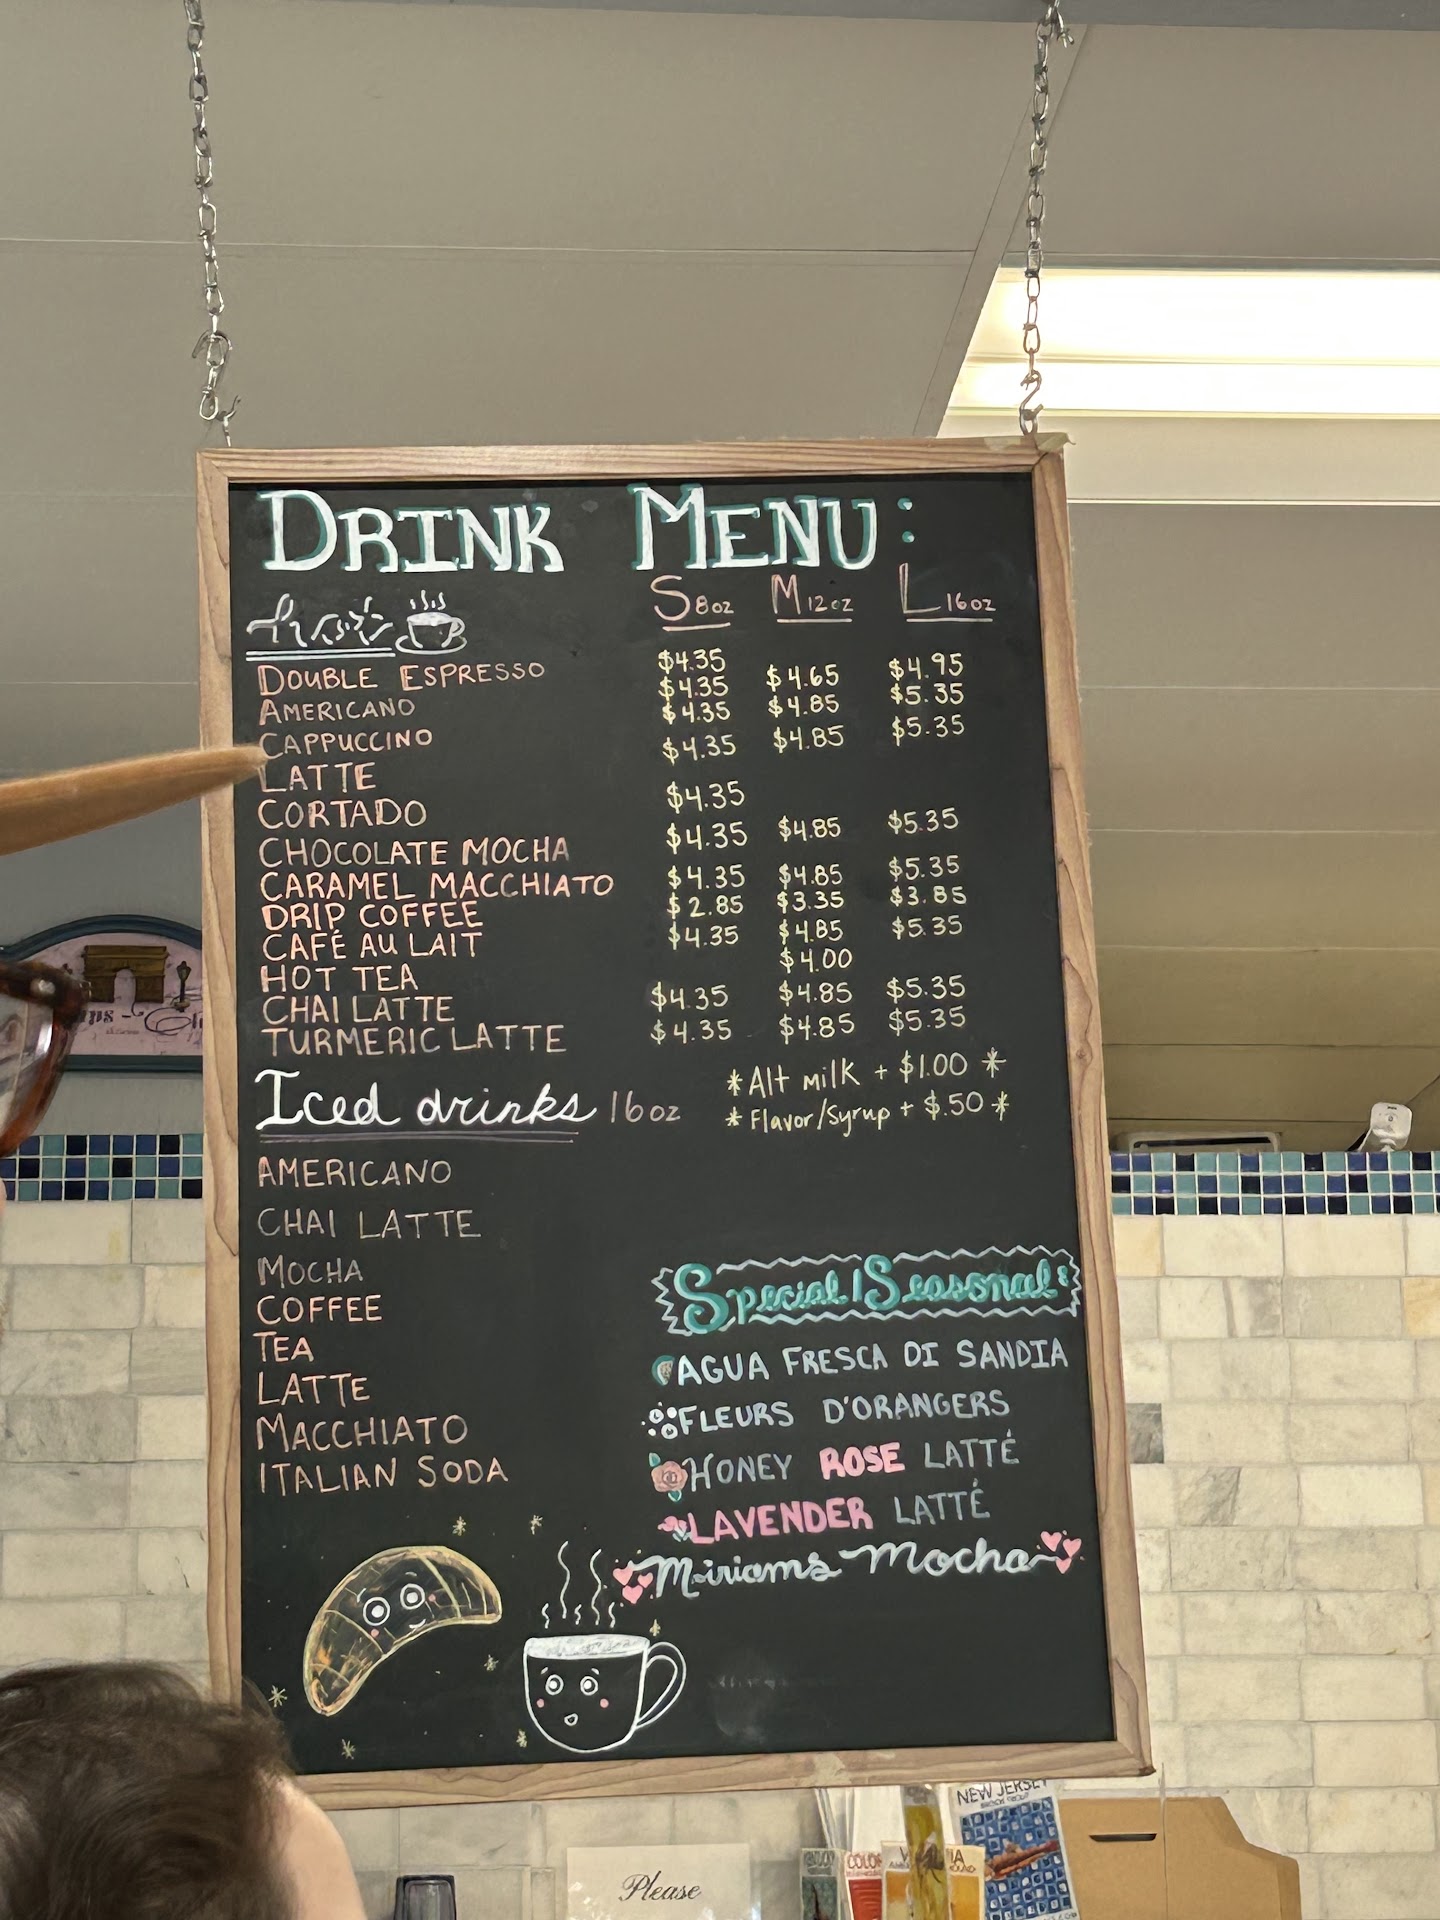 DRINK MENU:
hot
S 8oz M 12oz L 16oz
DOUBLE ESPRESSO $4.35
AMERICANO $4.35 $4.65 $4.95
CAPPUCCINO $4.35 $4.85 $5.35
LATTE $4.35 $4.85 $5.35
CORTADO $4.35
CHOCOLATE MOCHA $4.35 $4.85 $5.35
CARAMEL MACCHIATO $4.35 $4.85 $5.35
DRIP COFFEE $2.85 $3.35 $3.85
CAFÉ AU LAIT $4.35 $4.85 $5.35
HOT TEA $4.00
CHAI LATTE $4.35 $4.85 $5.35
TURMERIC LATTE $4.35 $4.85 $5.35
*Alt milk + $1.00 *
*Flavor/Syrup + $.50 *
Iced drinks 16oz
AMERICANO
CHAI LATTE
MOCHA
COFFEE
TEA
LATTE
MACCHIATO
ITALIAN SODA
Special/Seasonal:
AGUA FRESCA DI SANDIA
FLEURS D'ORANGERS
HONEY ROSE LATTÉ
LAVENDER LATTÉ
Miriams Mocha
NEW JERSEY
Please